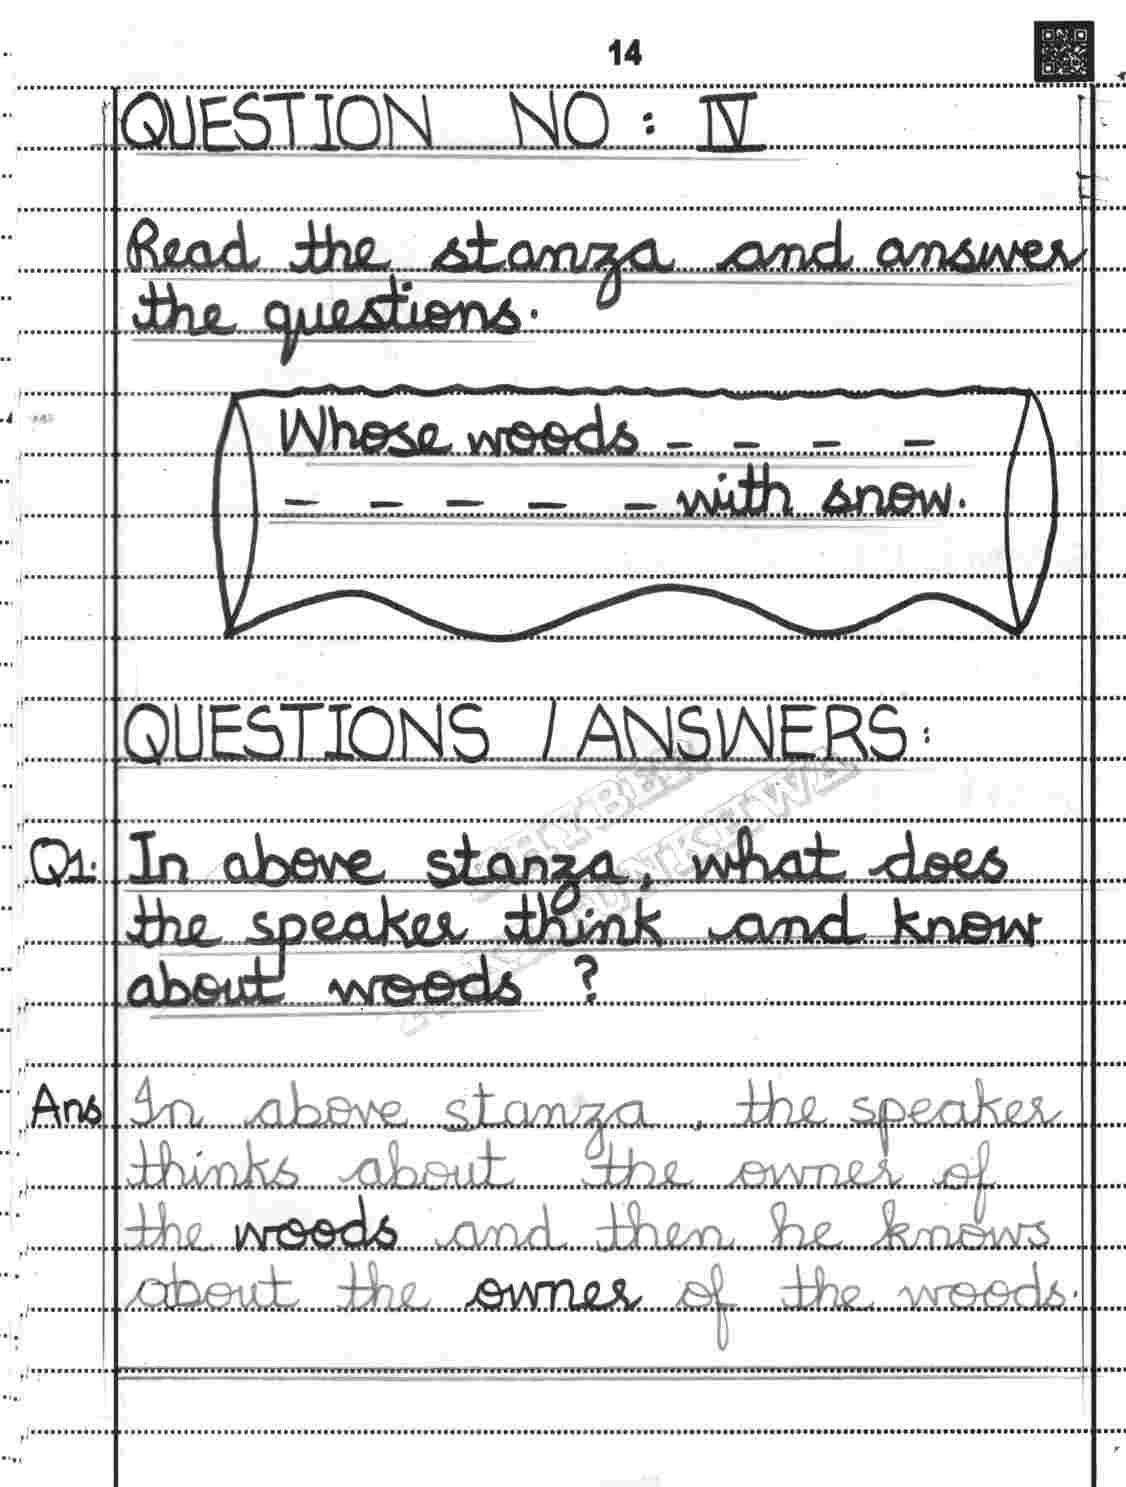 14
QUESTION NO : IV
Read the stanza and answer
the questions.
Whose woods _ _ _ _
_ _ _ _ _ with snow.
QUESTIONS / ANSWERS :
KHYBER
PAKHTUNKHWA
Q1. In above stanza, what does
the speaker think and know
about woods ?
Ans In above stanza, the speaker
thinks about the owner of
the woods and then he knows
about the owner of the woods.